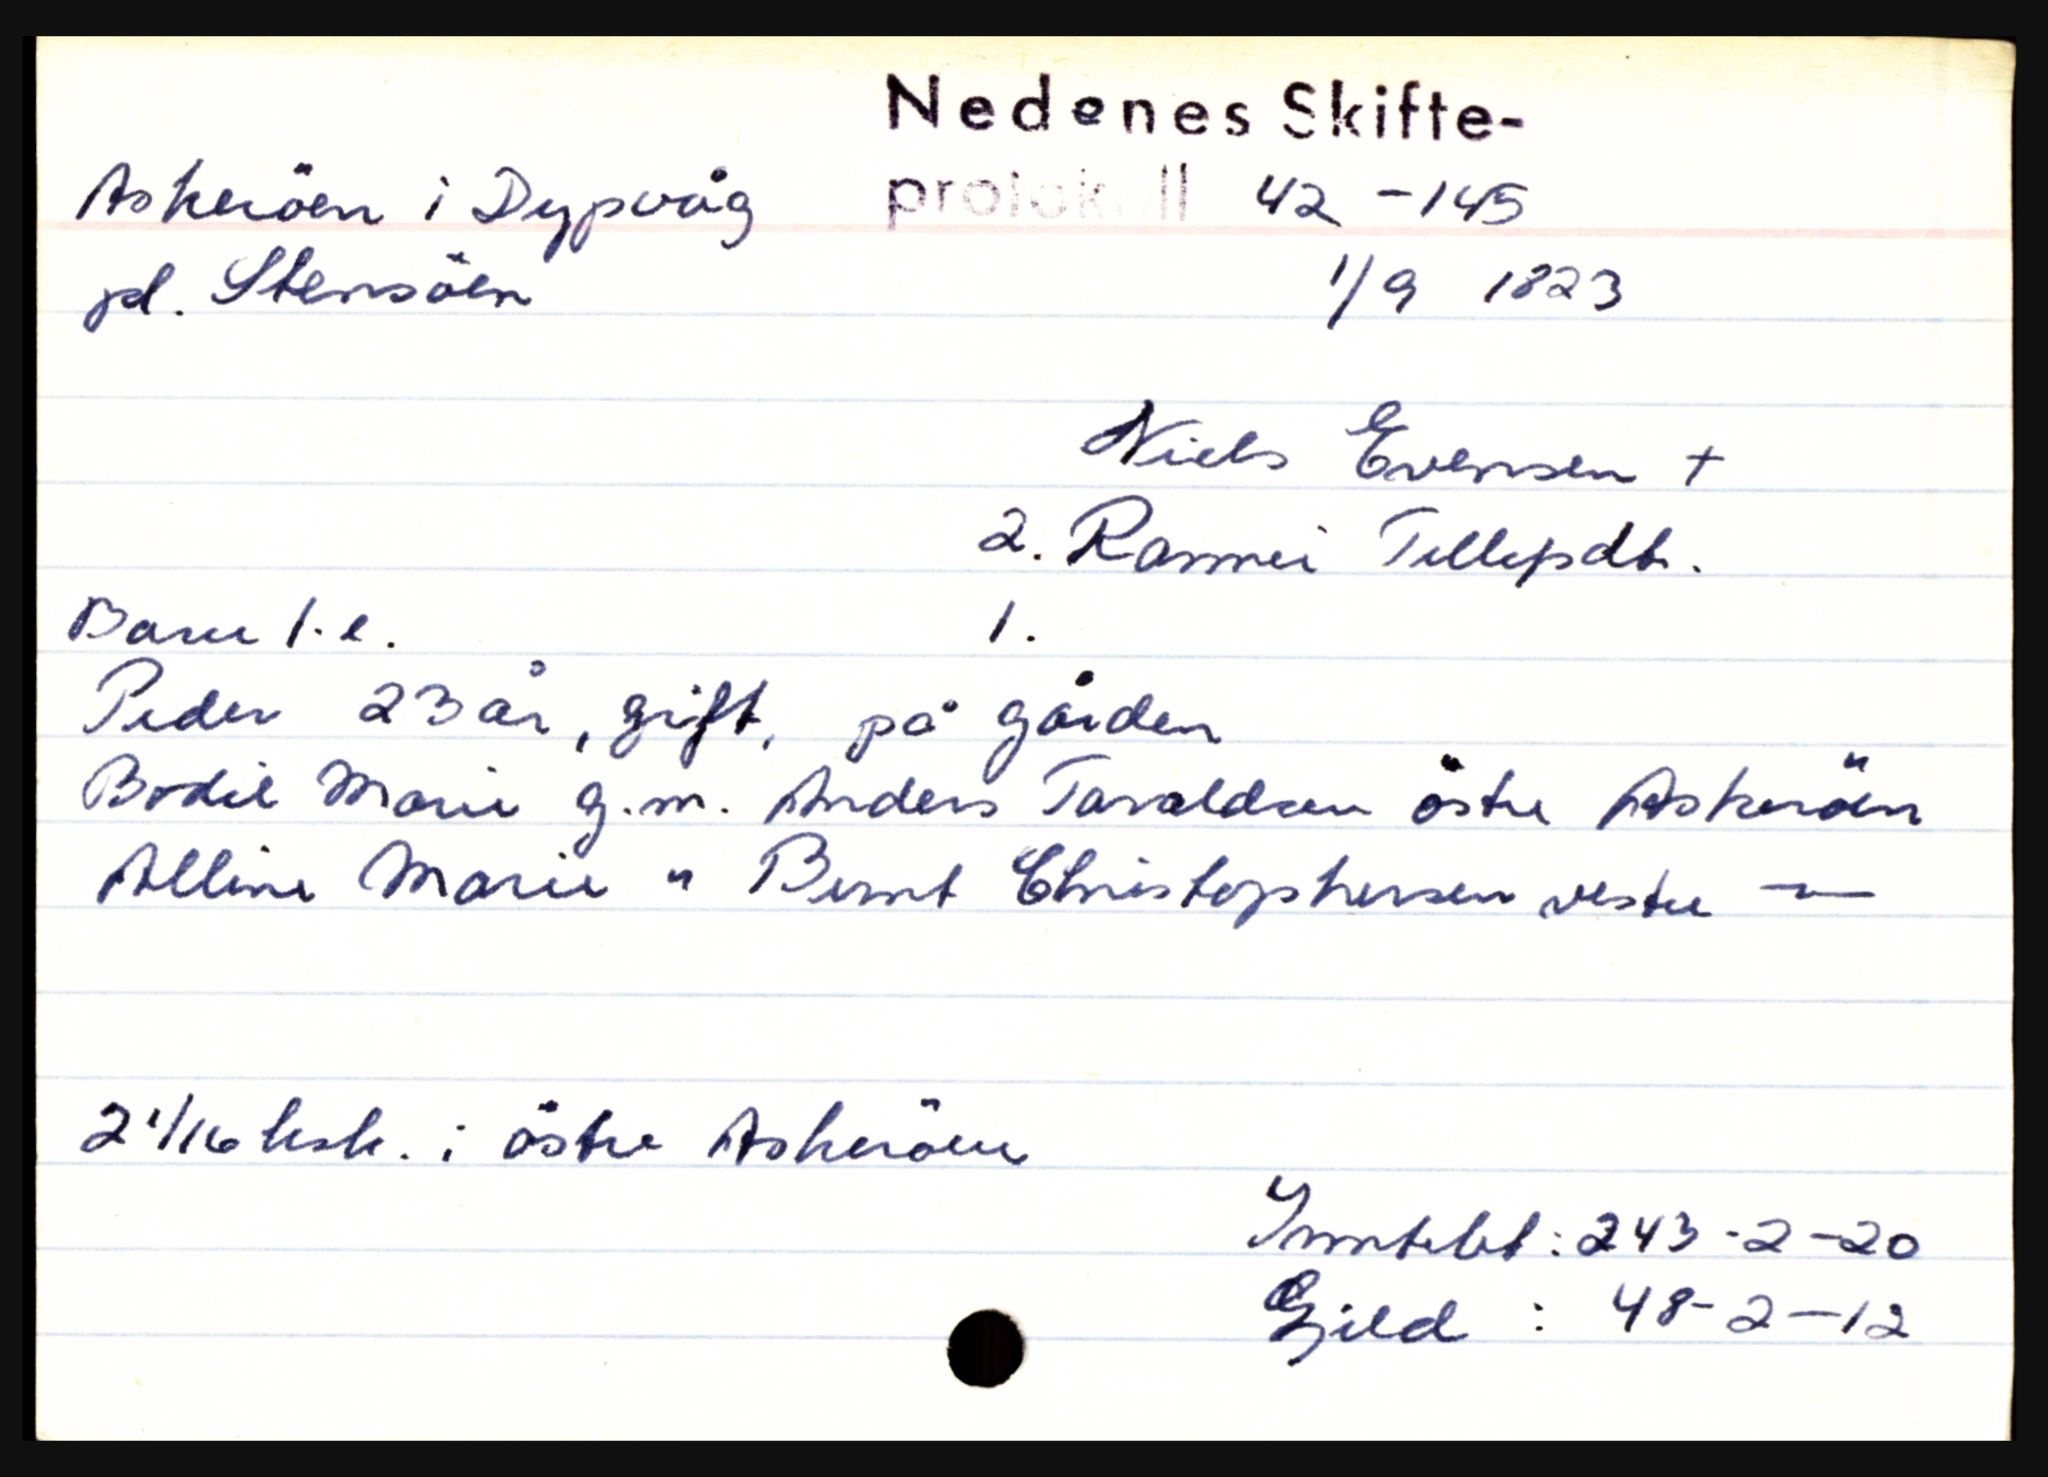 Nedenes Skifte-
Askeröen i Dypvåg protokoll 42 - 145
pl. Stensöen 1/9 1823
Niels Evensen +
2. Rannei Tellefsdt.
Barn 1. e. 1.
Peder 23 år, gift, på gården
Bodil Marie g.m. Anders Taraldsen östre Askeröen
Alline Marie " Bernt Christophersen vestre —"—
2 1/16 hsk. i östre Askeröen
Inntekt : 243 - 2 - 20
Gjeld : 48 - 2 - 12